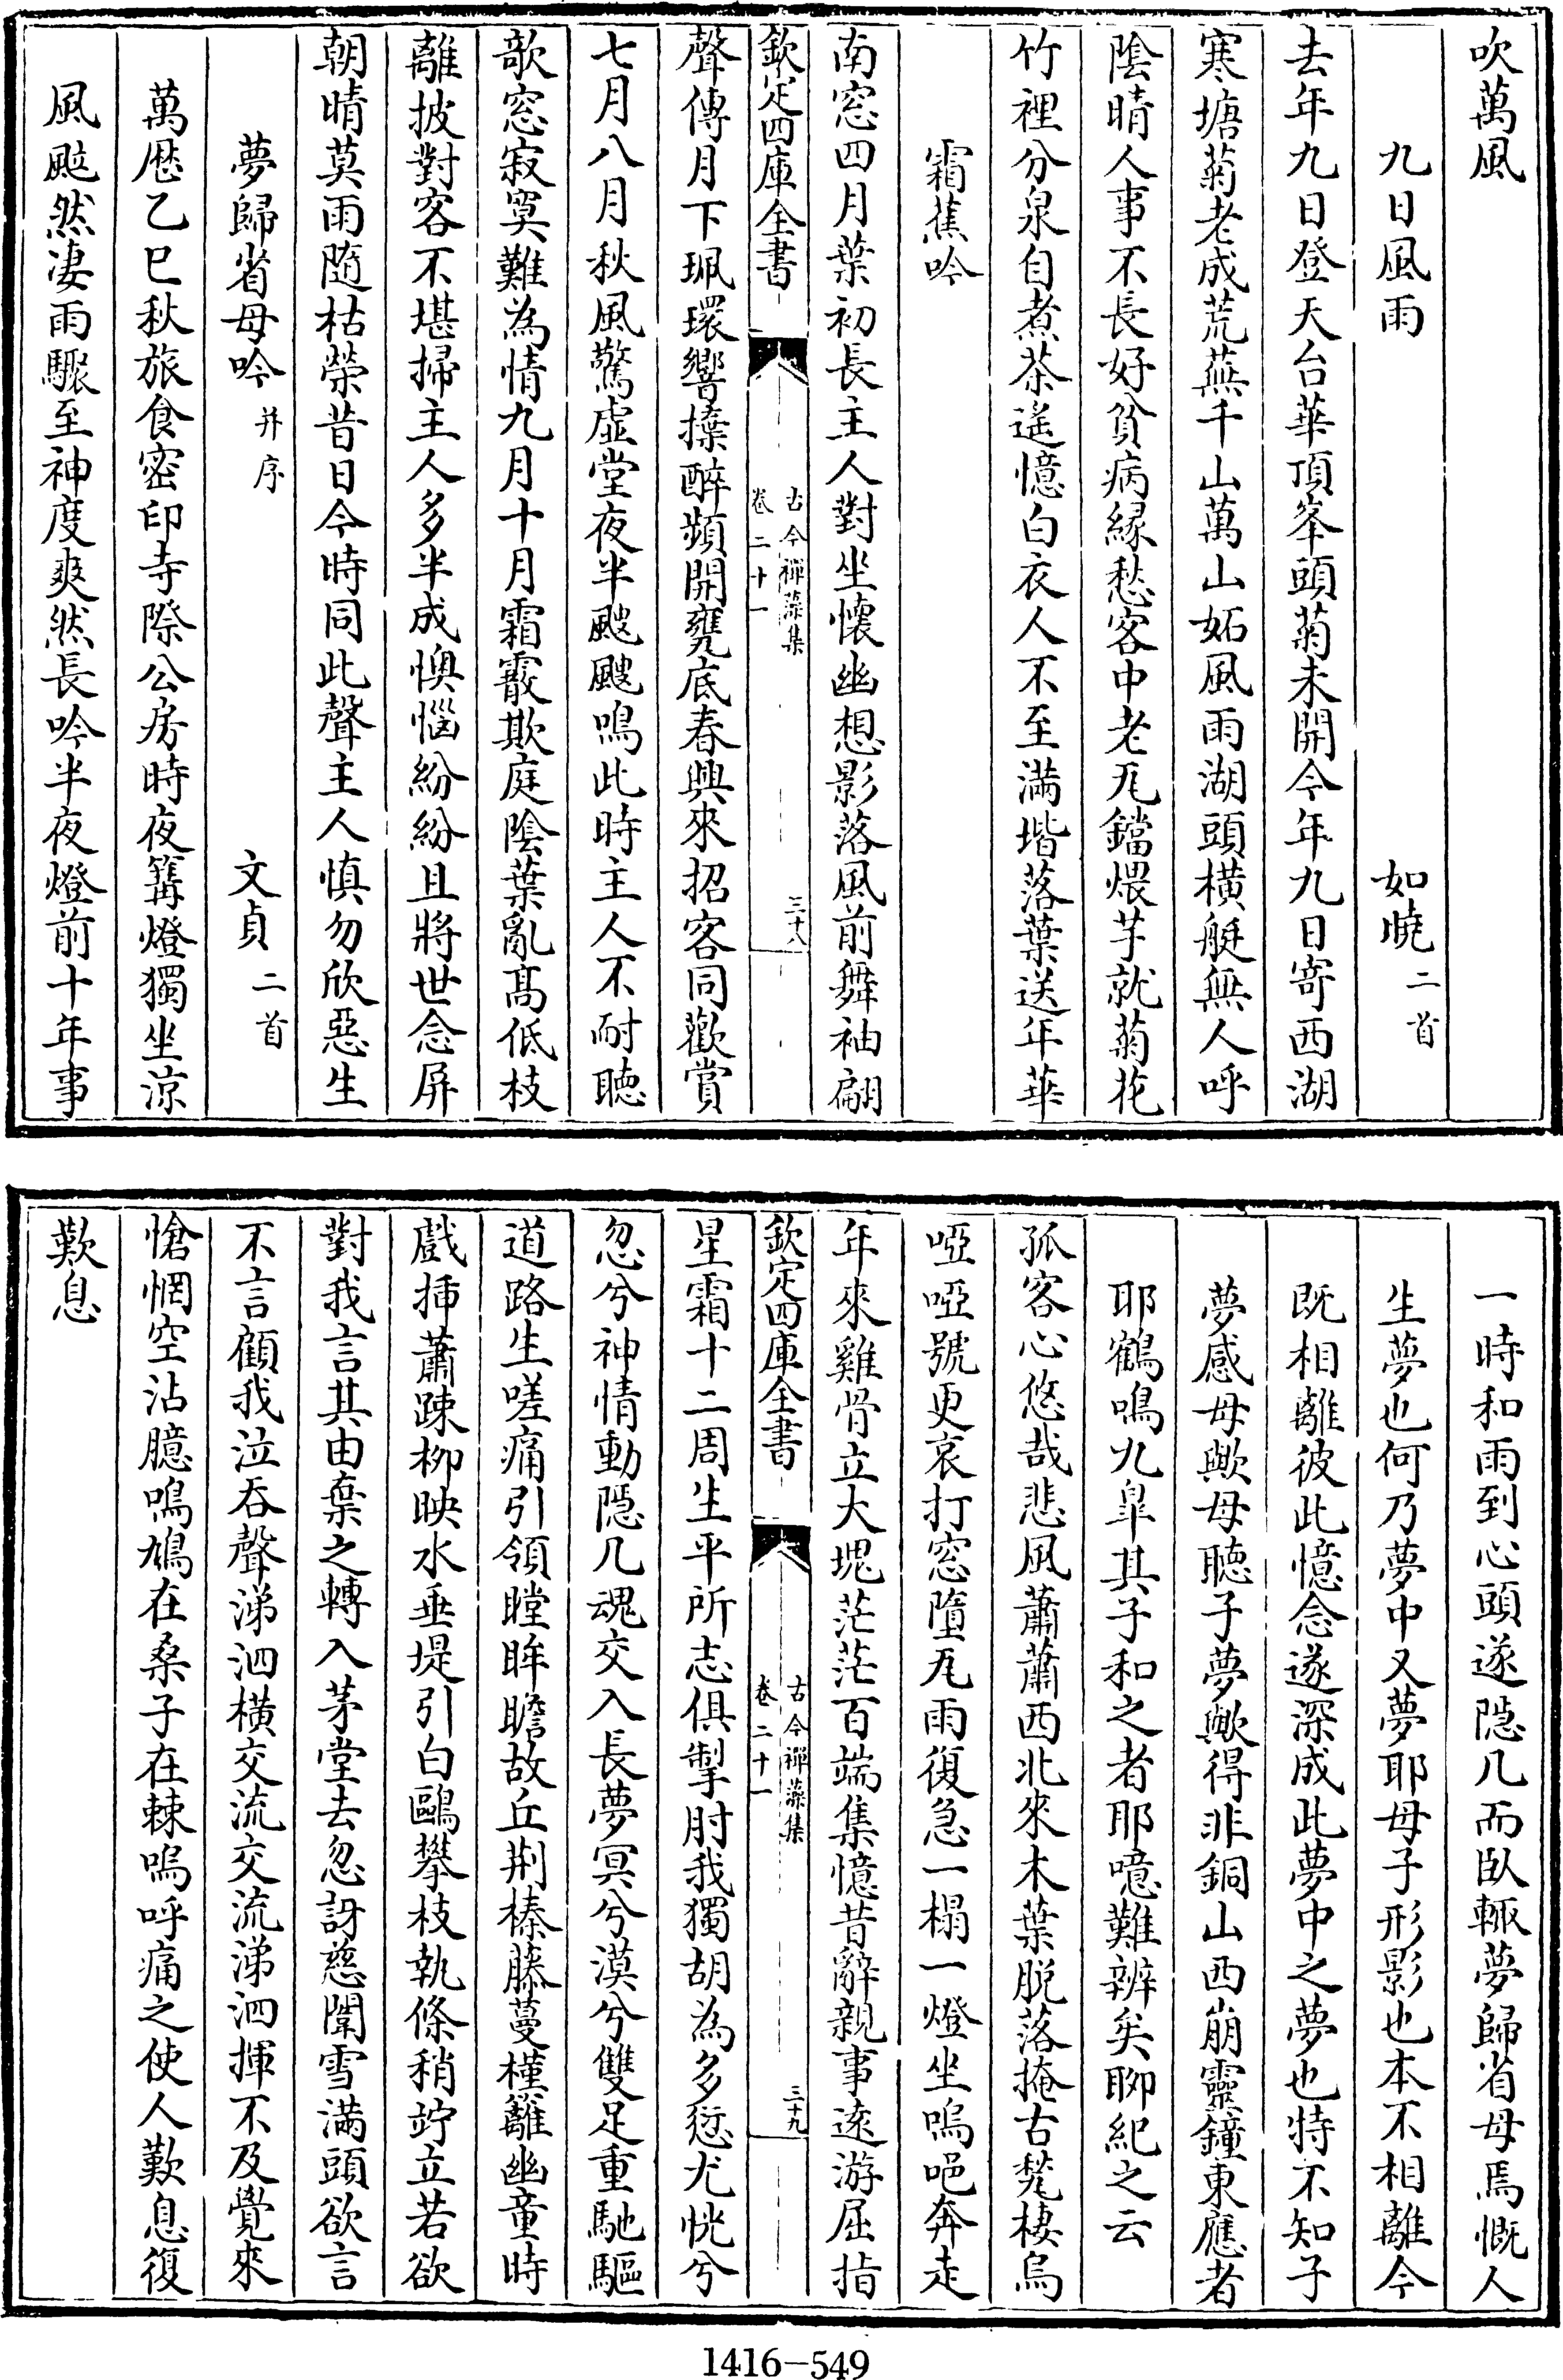 吹萬風
九日風雨 如曉二首
去年九日登天台華頂峯頭菊未開今年九日寄西湖
寒塘菊老成荒蕪千山萬山妬風雨湖頭橫艇無人呼
陰晴人事不長好貧病緣愁客中老瓦鐺煨芋就菊花
竹裡分泉自煮茶遙憶白衣人不至滿堦落葉送年華
霜蕉吟
南窓四月葉初長主人對坐懷幽想影落風前舞袖翩
欽定四庫全書
古今禪藻集
卷二十一
三十八
聲傳月下珮環響擽醉頻開甕底春興來招客同歡賞
七月八月秋風驚虛堂夜半颼颼鳴此時主人不耐聽
欹窓寂寞難為情九月十月霜霰欺庭陰葉亂高低枝
離披對客不堪掃主人多半成懊惱紛紛且將世念屏
朝晴莫雨隨枯榮昔日今時同此聲主人慎勿欣惡生
夢歸省母吟并序 文貞二首
萬厯乙巳秋旅食密印寺際公房時夜篝燈獨坐涼
風颸然淒雨驟至神度爽然長吟半夜燈前十年事
一時和雨到心頭遂隱几而臥輒夢歸省母焉慨人
生夢也何乃夢中又夢耶母子形影也本不相離今
既相離彼此憶念遂深成此夢中之夢也特不知子
夢感母歟母聽子夢歟得非銅山西崩靈鐘東應者
耶鶴鳴九臯其子和之者耶噫難辨矣聊紀之云
孤客心悠哉悲風蕭蕭西北來木葉脫落掩古甃棲烏
啞啞號更哀打窓墮瓦雨復急一榻一燈坐嗚唈奔走
年來雞骨立大塊茫茫百端集憶昔辭親事遠游屈指
欽定四庫全書
古今禪藻集
卷二十一
三十九
星霜十二周生平所志俱掣肘我獨胡為多愆尤恍兮
忽兮神情動隱几魂交入長夢冥兮漠兮雙足重馳驅
道路生嗟痛引領瞠眸瞻故丘荆榛藤蔓槿籬幽童時
戲插蕭疎柳映水垂堤引白鷗攀枝執條稍竚立若欲
對我言其由棄之轉入茅堂去忽訝慈闈雪滿頭欲言
不言顧我泣吞聲涕泗橫交流交流涕泗揮不及覺來
愴惘空沾臆鳴鳩在桑子在棘嗚呼痛之使人歎息復
歎息
1416-549